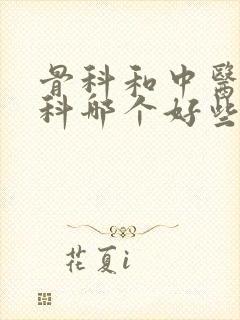 骨科和中醫
科哪个好些
花夏i